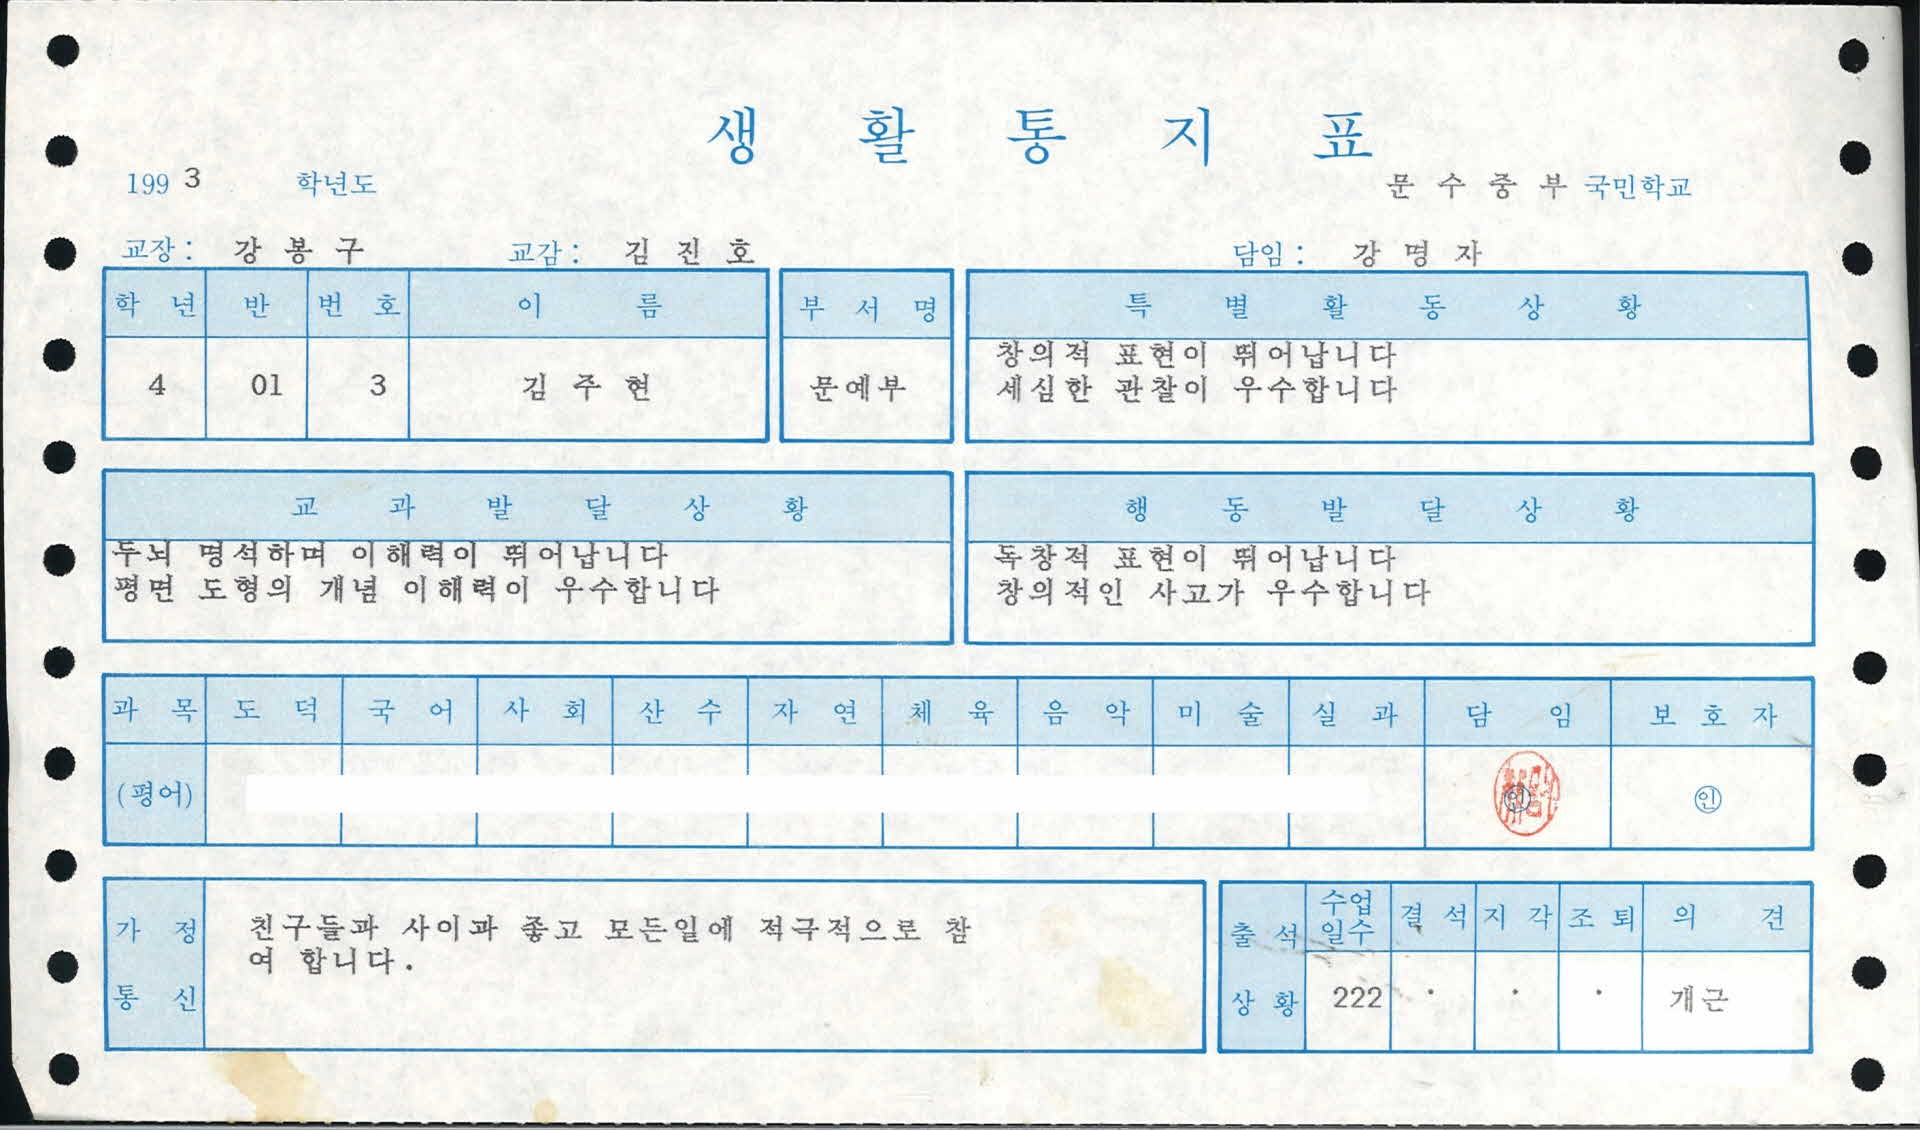 생 활 통 지 표
199 3 학년도 문 수 중 부 국민학교
교장 : 강 봉 구 교감 : 김 진 호 담임 : 강 명 자
학 년 반 번 호 이 름 부 서 명 특 별 활 동 상 황
4 01 3 김 주 현 문예부
창의적 표현이 뛰어납니다
세심한 관찰이 우수합니다
교 과 발 달 상 황
두뇌 명석하며 이해력이 뛰어납니다
평면 도형의 개념 이해력이 우수합니다
행 동 발 달 상 황
독창적 표현이 뛰어납니다
창의적인 사고가 우수합니다
과 목 도 덕 국 어 사 회 산 수 자 연 체 육 음 악 미 술 실 과 담 임 보 호 자
(평어) 인 인
가 정 통 신
친구들과 사이과 좋고 모든일에 적극적으로 참
여 합니다.
출 석 상 황
수업 일수 결 석 지 각 조 퇴 의 견
222 · · · 개근